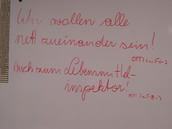 Wir wollen alle
nett zueinander sein!
Auch zum Lebensmittel-
inspektor!